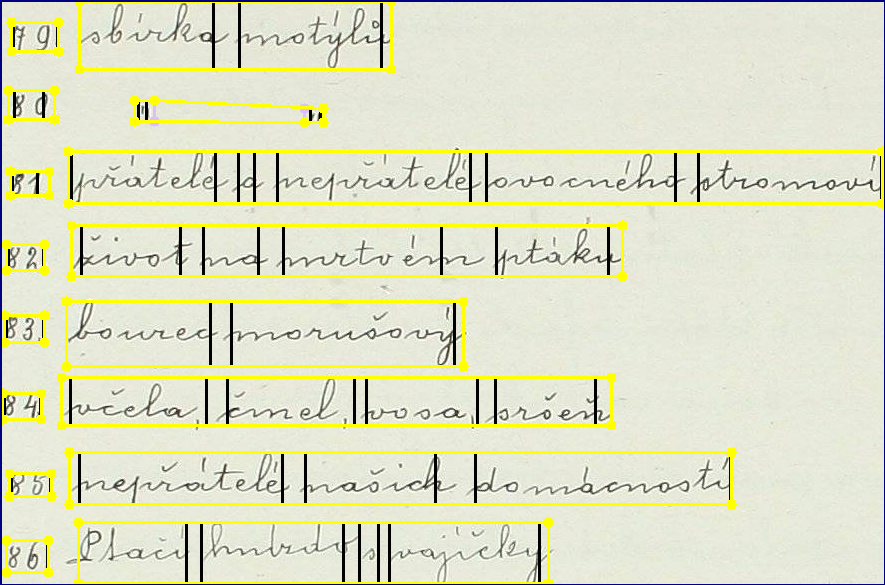 79 sbírka motýlů
80 " "
81 přátelé a nepřátelé ovocného stromoví
82 život na mrtvém ptáku
83. bourec morušový
84. včela, čmel, vosa, sršeň
85 nepřátelé našich domácností
86 Ptačí hnízdo s vajíčky.